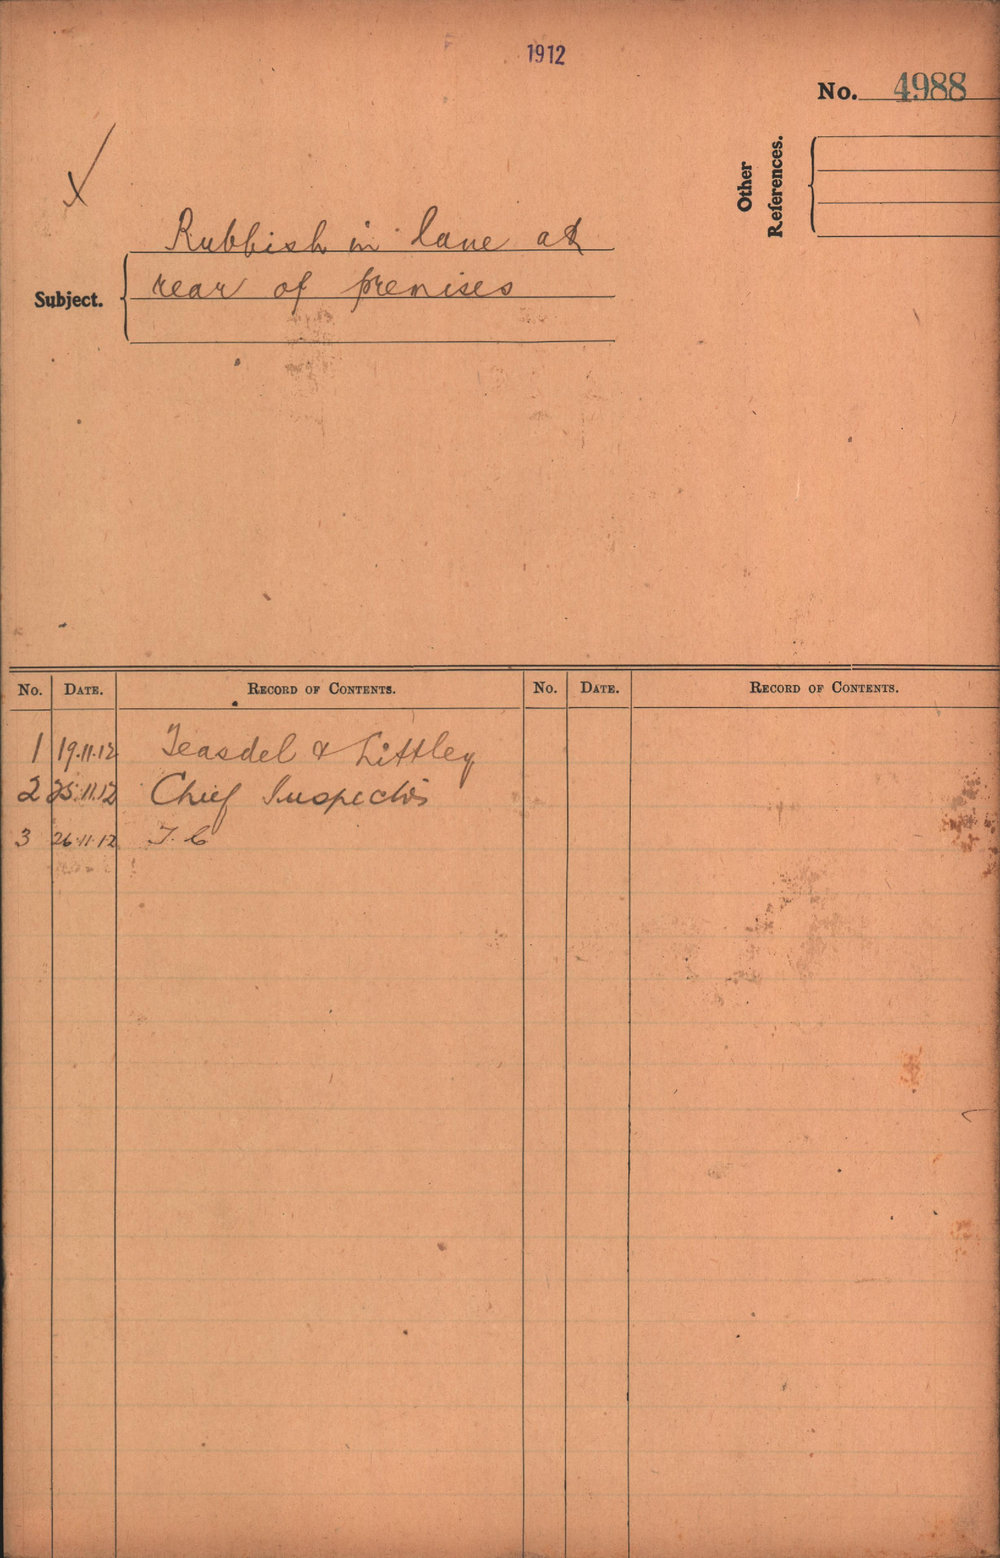 1912
No. 4988
Other References.
Rubbish in lane at
Subject. rear of premises
No. DATE. RECORD OF CONTENTS. No. DATE. RECORD OF CONTENTS.
1 19.11.12 Teasdel & Littley
2 25.11.12 Chief Inspector
3 26.11.12 T. C